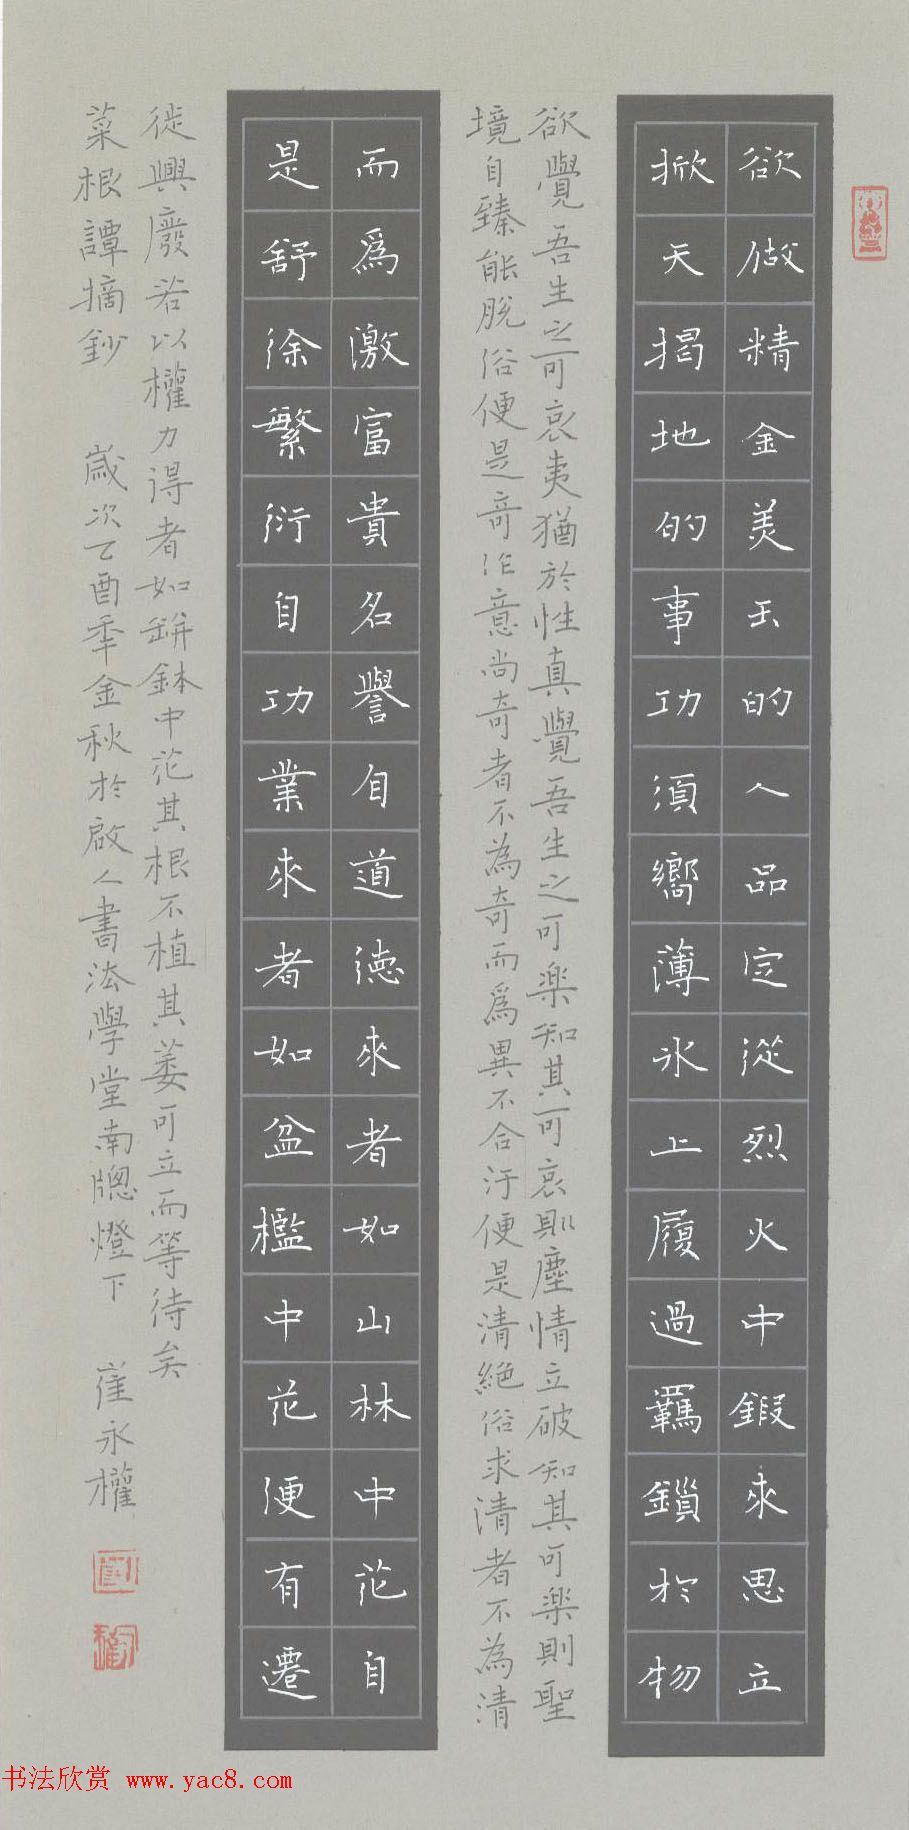 欲做精金美玉的人品定從烈火中鍛來思立
掀天揭地的事功須嚮薄冰上履過羈鎖於物
欲覺吾生之可哀夷猶於性真覺吾生之可樂知其可哀則塵情立破知其可樂則聖
境自臻能脫俗便是奇作意尚奇者不為奇而為異不合汙便是清絕俗求清者不為清
而為激富貴名譽自道德來者如山林中花自
是舒徐繁衍自功業來者如盆檻中花便有遷
徙興廢若以權力得者如缾鉢中花其根不植其萎可立而等待矣
菜根譚摘鈔 歲次乙酉年金秋於啟人書法學堂南牕燈下 崔永權
书法欣赏 www.yac8.com